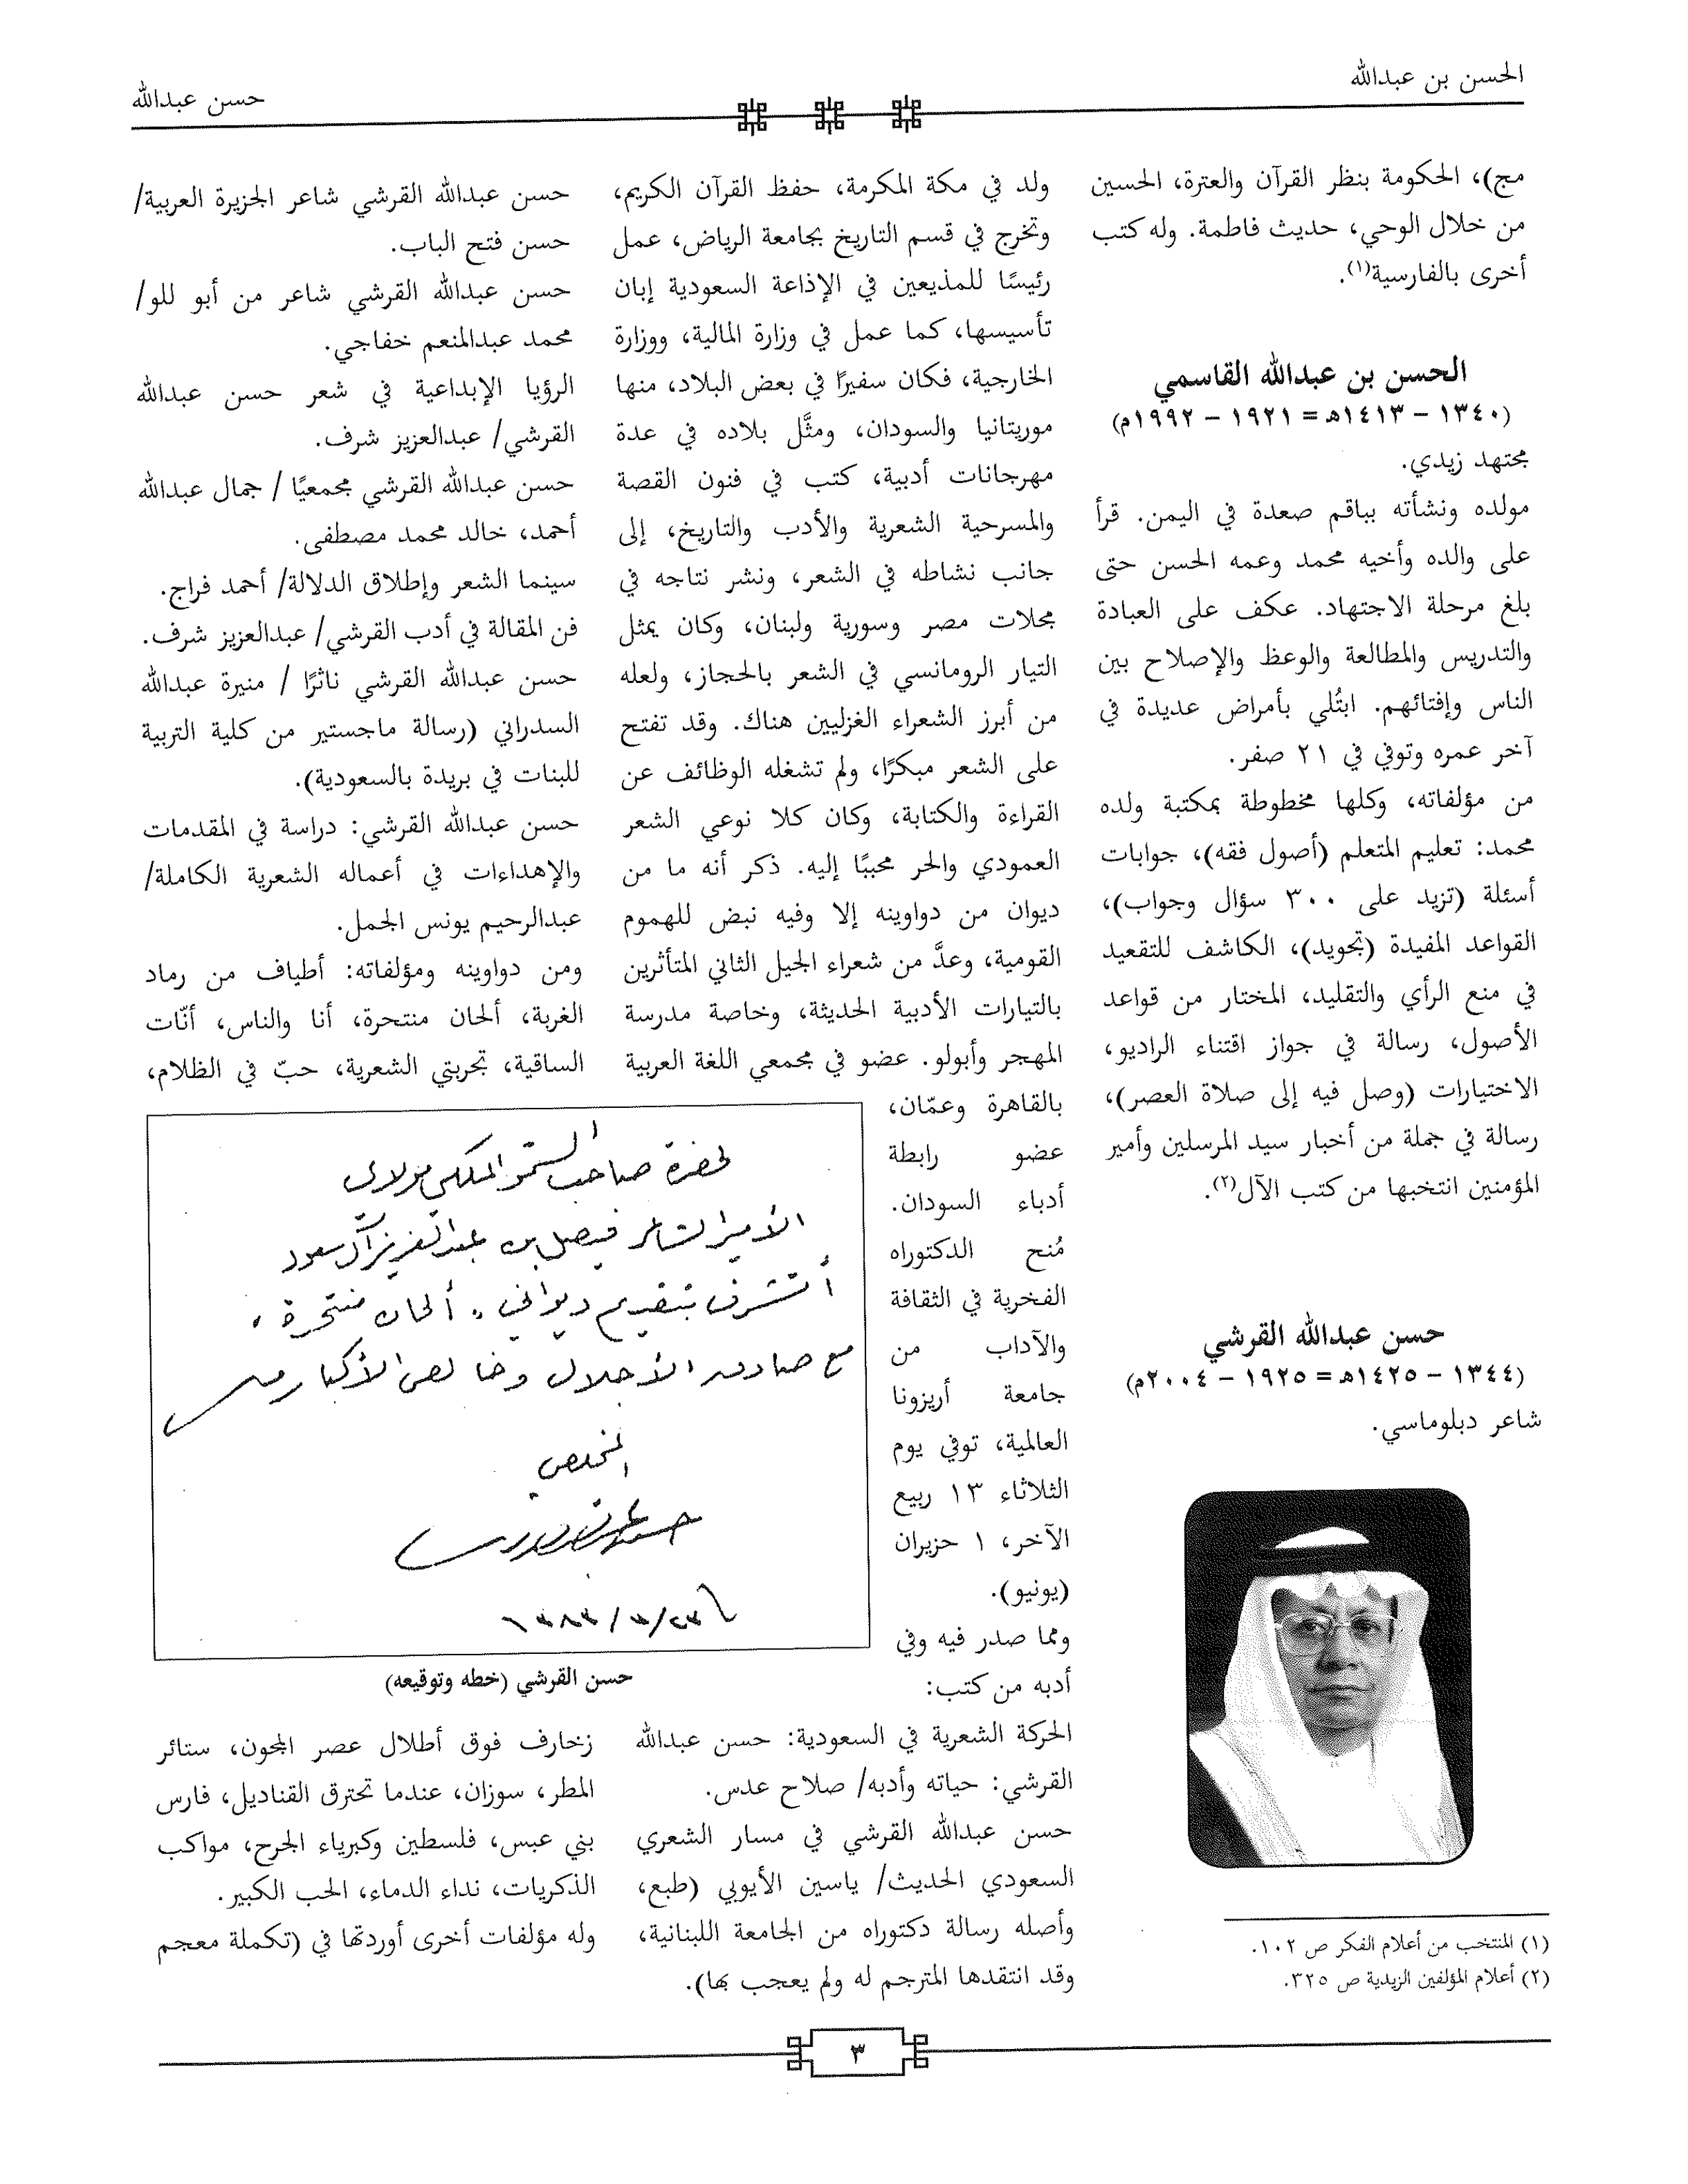 الحسن بن عبدالله
حسن عبدالله
مج)، الحكومة بنظر القرآن والعترة، الحسين
من خلال الوحي، حديث فاطمة. وله كتب
أخرى بالفارسية(١).
الحسن بن عبدالله القاسمي
(١٣٤٠ – ١٤١٣هـ = ١٩٢١ – ١٩٩٢م)
مجتهد زيدي.
مولده ونشأته بباقم صعدة في اليمن. قرأ
على والده وأخيه محمد وعمه الحسن حتى
بلغ مرحلة الاجتهاد. عكف على العبادة
والتدريس والمطالعة والوعظ والإصلاح بين
الناس وإفتائهم. ابتُلي بأمراض عديدة في
آخر عمره وتوفي في ٢١ صفر.
من مؤلفاته، وكلها مخطوطة بمكتبة ولده
محمد: تعليم المتعلم (أصول فقه)، جوابات
أسئلة (تزيد على ٣٠٠ سؤال وجواب)،
القواعد المفيدة (تجويد)، الكاشف للتقعيد
في منع الرأي والتقليد، المختار من قواعد
الأصول، رسالة في جواز اقتناء الراديو،
الاختيارات (وصل فيه إلى صلاة العصر)،
رسالة في جملة من أخبار سيد المرسلين وأمير
المؤمنين انتخبها من كتب الآل(٢).
حسن عبدالله القرشي
(١٣٤٤ – ١٤٢٥هـ = ١٩٢٥ – ٢٠٠٤م)
شاعر دبلوماسي.
(١) المنتخب من أعلام الفكر ص ١٠٢.
(٢) أعلام المؤلفين الزيدية ص ٣٢٥.
ولد في مكة المكرمة، حفظ القرآن الكريم،
وتخرج في قسم التاريخ بجامعة الرياض، عمل
رئيسًا للمذيعين في الإذاعة السعودية إبان
تأسيسها، كما عمل في وزارة المالية، ووزارة
الخارجية، فكان سفيرًا في بعض البلاد، منها
موريتانيا والسودان، ومثَّل بلاده في عدة
مهرجانات أدبية، كتب في فنون القصة
والمسرحية الشعرية والأدب والتاريخ، إلى
جانب نشاطه في الشعر، ونشر نتاجه في
مجلات مصر وسورية ولبنان، وكان يمثل
التيار الرومانسي في الشعر بالحجاز، ولعله
من أبرز الشعراء الغزليين هناك. وقد تفتح
على الشعر مبكرًا، ولم تشغله الوظائف عن
القراءة والكتابة، وكان كلا نوعي الشعر
العمودي والحر محببًا إليه. ذكر أنه ما من
ديوان من دواوينه إلا وفيه نبض للهموم
القومية، وعدَّ من شعراء الجيل الثاني المتأثرين
بالتيارات الأدبية الحديثة، وخاصة مدرسة
المهجر وأبولو. عضو في مجمعي اللغة العربية
بالقاهرة وعمّان،
عضو رابطة
أدباء السودان.
مُنح الدكتوراه
الفخرية في الثقافة
والآداب من
جامعة أريزونا
العالمية، توفي يوم
الثلاثاء ١٣ ربيع
الآخر، ١ حزيران
(يونيو).
ومما صدر فيه وفي
أدبه من كتب:
الحركة الشعرية في السعودية: حسن عبدالله
القرشي: حياته وأدبه/ صلاح عدس.
حسن عبدالله القرشي في مسار الشعري
السعودي الحديث/ ياسين الأيوبي (طبع،
وأصله رسالة دكتوراه من الجامعة اللبنانية،
وقد انتقدها المترجم له ولم يعجب بها).
حسن عبدالله القرشي شاعر الجزيرة العربية/
حسن فتح الباب.
حسن عبدالله القرشي شاعر من أبو للو/
محمد عبدالمنعم خفاجي.
الرؤيا الإبداعية في شعر حسن عبدالله
القرشي/ عبدالعزيز شرف.
حسن عبدالله القرشي مجمعيًا / جمال عبدالله
أحمد، خالد محمد مصطفى.
سينما الشعر وإطلاق الدلالة/ أحمد فراج.
فن المقالة في أدب القرشي/ عبدالعزيز شرف.
حسن عبدالله القرشي ناثرًا / منيرة عبدالله
السدراني (رسالة ماجستير من كلية التربية
للبنات في بريدة بالسعودية).
حسن عبدالله القرشي: دراسة في المقدمات
والإهداءات في أعماله الشعرية الكاملة/
عبدالرحيم يونس الجمل.
ومن دواوينه ومؤلفاته: أطياف من رماد
الغربة، ألحان منتحرة، أنا والناس، أنّات
الساقية، تجربتي الشعرية، حبّ في الظلام،
لحضرة صاحب السمو الملكي مولاي
الأمير الشاعر فيصل بن عبدالعزيز آل سعود
أتشرف بتقديم ديواني "ألحان منتحرة"
مع صادق الإجلال وخالص الإكبار
المخلص
حسن القرشي (خطه وتوقيعه)
زخارف فوق أطلال عصر المجون، ستائر
المطر، سوزان، عندما تحترق القناديل، فارس
بني عبس، فلسطين وكبرياء الجرح، مواكب
الذكريات، نداء الدماء، الحب الكبير.
وله مؤلفات أخرى أوردتها في (تكملة معجم
٣